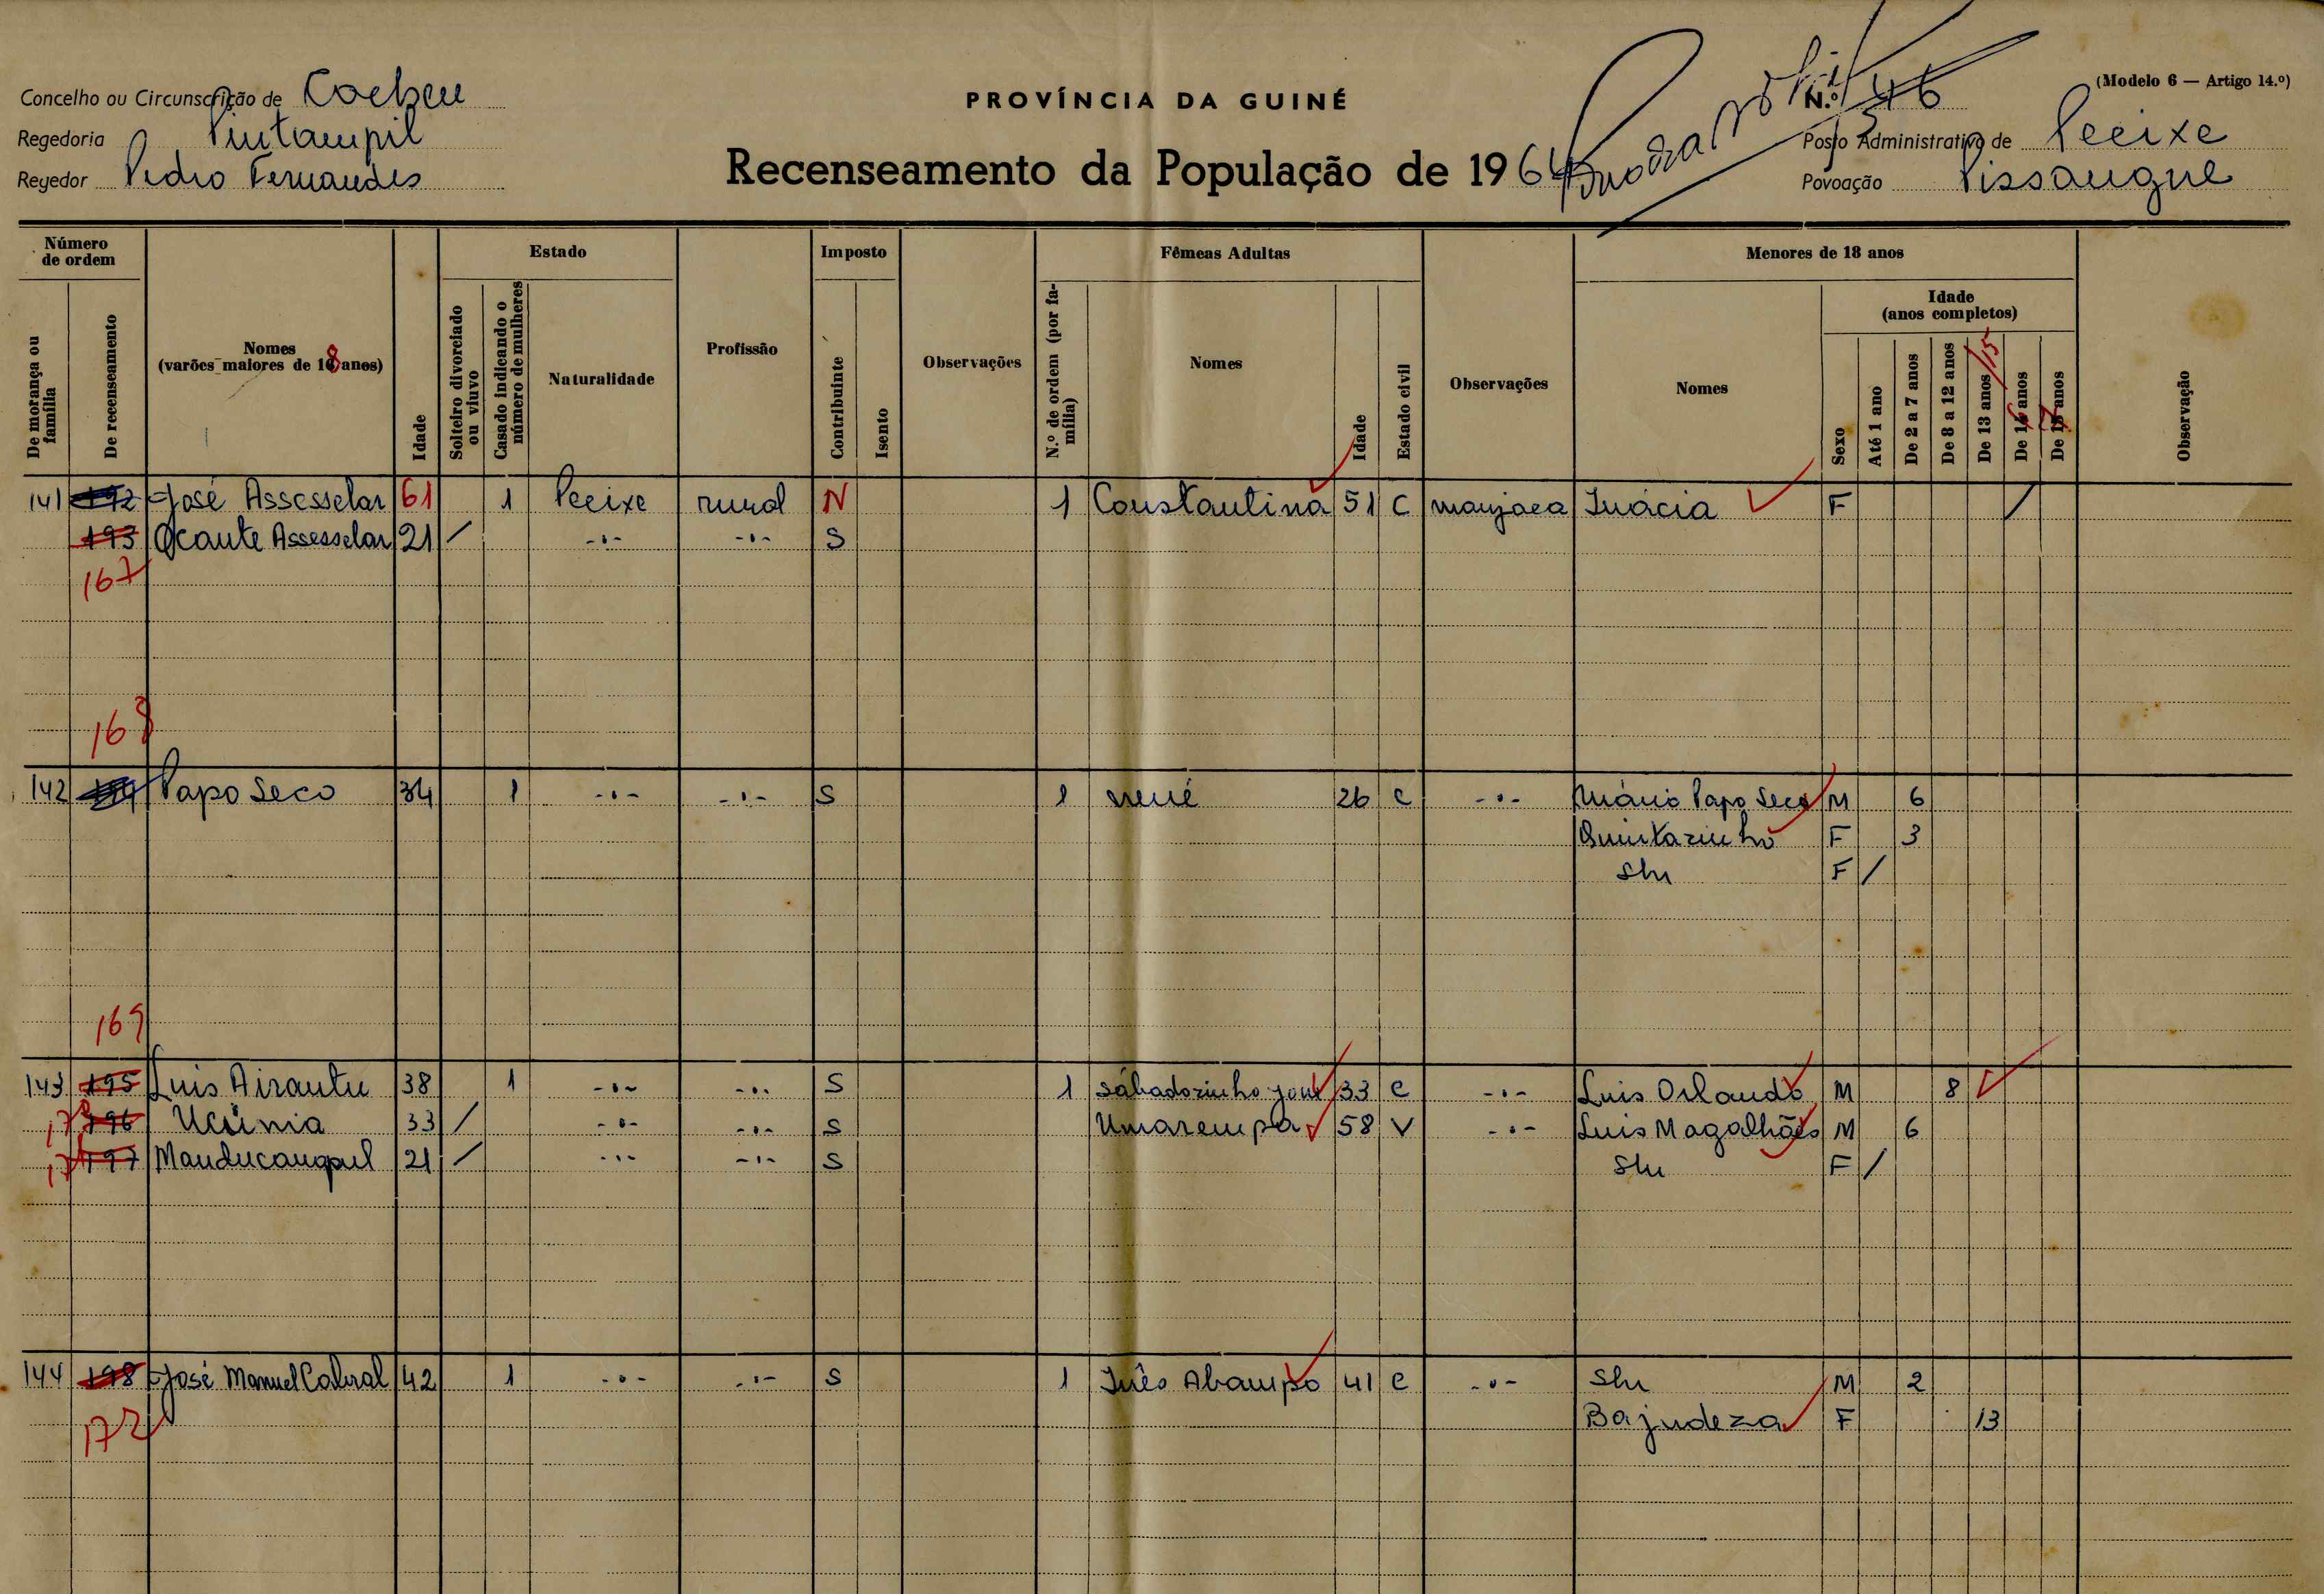 Concelho ou Circunscrição de Cacheu
PROVÍNCIA DA GUINÉ
N.º 46
(Modelo 6 — Artigo 14.º)
Regedoria Pintampil
Posto Administrativo de Pecixe
Regedor Pedro Fernandes
Recenseamento da População de 1964
Povoação Pissangue
Número de ordem
De morança ou família
De recenseamento
Nomes (varões maiores de 18 anos)
Idade
Estado
Solteiro divorciado ou viuvo
Casado indicando o número de mulheres
Naturalidade
Profissão
Imposto
Contribuinte
Isento
Observações
Fêmeas Adultas
N.º de ordem (por família)
Nomes
Idade
Estado civil
Observações
Menores de 18 anos
Nomes
Idade (anos completos)
Sexo
Até 1 ano
De 2 a 7 anos
De 8 a 12 anos
De 13 anos /15
De 16 anos
De 17 anos
Observação
141 192 José Assesselar 61 1 Pecixe rural N 1 Constantina 51 C manjaca Inácia F /
193 Ocante Assesselar 21 / -"- -"- S
167
168
142 Papo Seco 34 1 -"- -"- S 1 nené 26 C -"- Mário Papo Seco M 6
Quintazinho F 3
S/n F /
169
143 195 Luis Airantu 38 1 -"- -"- S 1 Sábadozinho 33 C -"- Luis Orlando M 8
196 Ucúnia 33 / -"- -"- S Umarempa 58 V -"- Luis Magalhães M 6
197 Manducangpul 21 / -"- -"- S S/n F /
144 198 José Manuel Cabral 42 1 -"- -"- S 1 Inês Abampo 41 C -"- S/n M 2
172 Bajudeza F 13